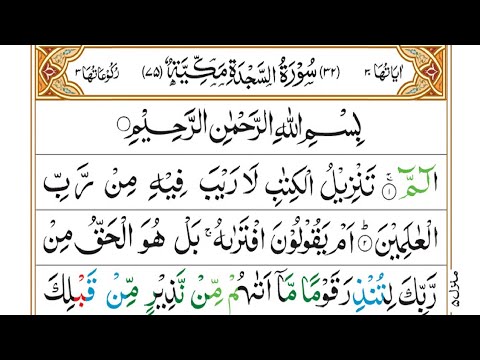 اٰیَاتُهَا ٣٠ (٣٢) سُوْرَةُ السَّجْدَةِ مَكِّیَّةٌ (٧٥) رُكُوْعَاتُهَا ٣
بِسْمِ اللّٰهِ الرَّحْمٰنِ الرَّحِیْمِ
الٓمّٓ ۚ‏﴿١﴾ تَنْزِیْلُ الْكِتٰبِ لَا رَیْبَ فِیْهِ مِنْ رَّبِّ
الْعٰلَمِیْنَ ؕ‏﴿٢﴾ اَمْ یَقُوْلُوْنَ افْتَرٰىهُ ۚ بَلْ هُوَ الْحَقُّ مِنْ
رَّبِّكَ لِتُنْذِرَ قَوْمًا مَّاۤ اَتٰىهُمْ مِّنْ نَّذِیْرٍ مِّنْ قَبْلِكَ
منزل ٥